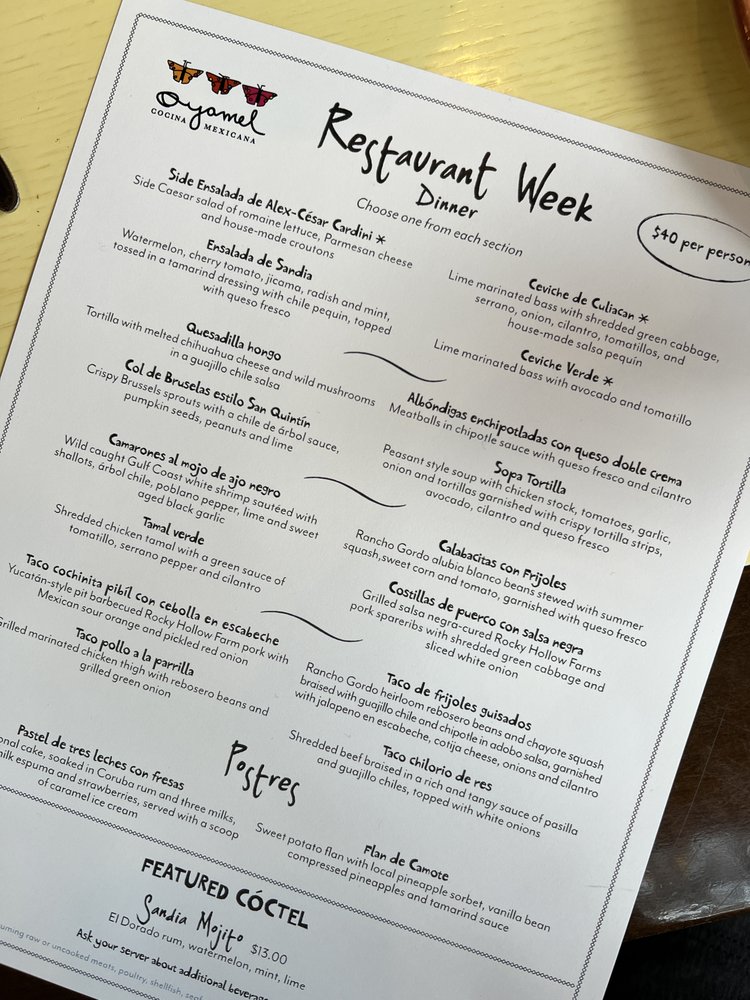 Oyamel
COCINA MEXICANA
Restaurant Week
Dinner
Choose one from each section
$40 per person
Side Ensalada de Alex-César Cardini *
Side Caesar salad of romaine lettuce, Parmesan cheese
and house-made croutons
Ensalada de Sandia
Watermelon, cherry tomato, jicama, radish and mint,
tossed in a tamarind dressing with chile pequin, topped
with queso fresco
Ceviche de Culiacan *
Lime marinated bass with shredded green cabbage,
serrano, onion, cilantro, tomatillos, and
house-made salsa pequin
Ceviche Verde *
Lime marinated bass with avocado and tomatillo
Quesadilla hongo
Tortilla with melted chihuahua cheese and wild mushrooms
in a guajillo chile salsa
Col de Bruselas estilo San Quintín
Crispy Brussels sprouts with a chile de árbol sauce,
pumpkin seeds, peanuts and lime
Albóndigas enchipotladas con queso doble crema
Meatballs in chipotle sauce with queso fresco and cilantro
Sopa Tortilla
Peasant style soup with chicken stock, tomatoes, garlic,
onion and tortillas garnished with crispy tortilla strips,
avocado, cilantro and queso fresco
Camarones al mojo de ajo negro
Wild caught Gulf Coast white shrimp sautéed with
shallots, árbol chile, poblano pepper, lime and sweet
aged black garlic
Tamal verde
Shredded chicken tamal with a green sauce of
tomatillo, serrano pepper and cilantro
Calabacitas con Frijoles
Rancho Gordo alubia blanco beans stewed with summer
squash,sweet corn and tomato, garnished with queso fresco
Costillas de puerco con salsa negra
Grilled salsa negra-cured Rocky Hollow Farms
pork spareribs with shredded green cabbage and
sliced white onion
Taco cochinita pibíl con cebolla en escabeche
Yucatán-style pit barbecued Rocky Hollow Farm pork with
Mexican sour orange and pickled red onion
Taco pollo a la parrilla
Grilled marinated chicken thigh with rebosero beans and
grilled green onion
Taco de frijoles guisados
Rancho Gordo heirloom rebosero beans and chayote squash
braised with guajillo chile and chipotle in adobo salsa, garnished
with jalapeno en escabeche, cotija cheese, onions and cilantro
Taco chilorio de res
Shredded beef braised in a rich and tangy sauce of pasilla
and guajillo chiles, topped with white onions
Postres
Pastel de tres leches con fresas
cake, soaked in Coruba rum and three milks,
milk espuma and strawberries, served with a scoop
of caramel ice cream
Flan de Camote
Sweet potato flan with local pineapple sorbet, vanilla bean
compressed pineapples and tamarind sauce
FEATURED CÓCTEL
Sandia Mojito $13.00
El Dorado rum, watermelon, mint, lime
Ask your server about additional
raw or uncooked meats, poultry, shellfish,